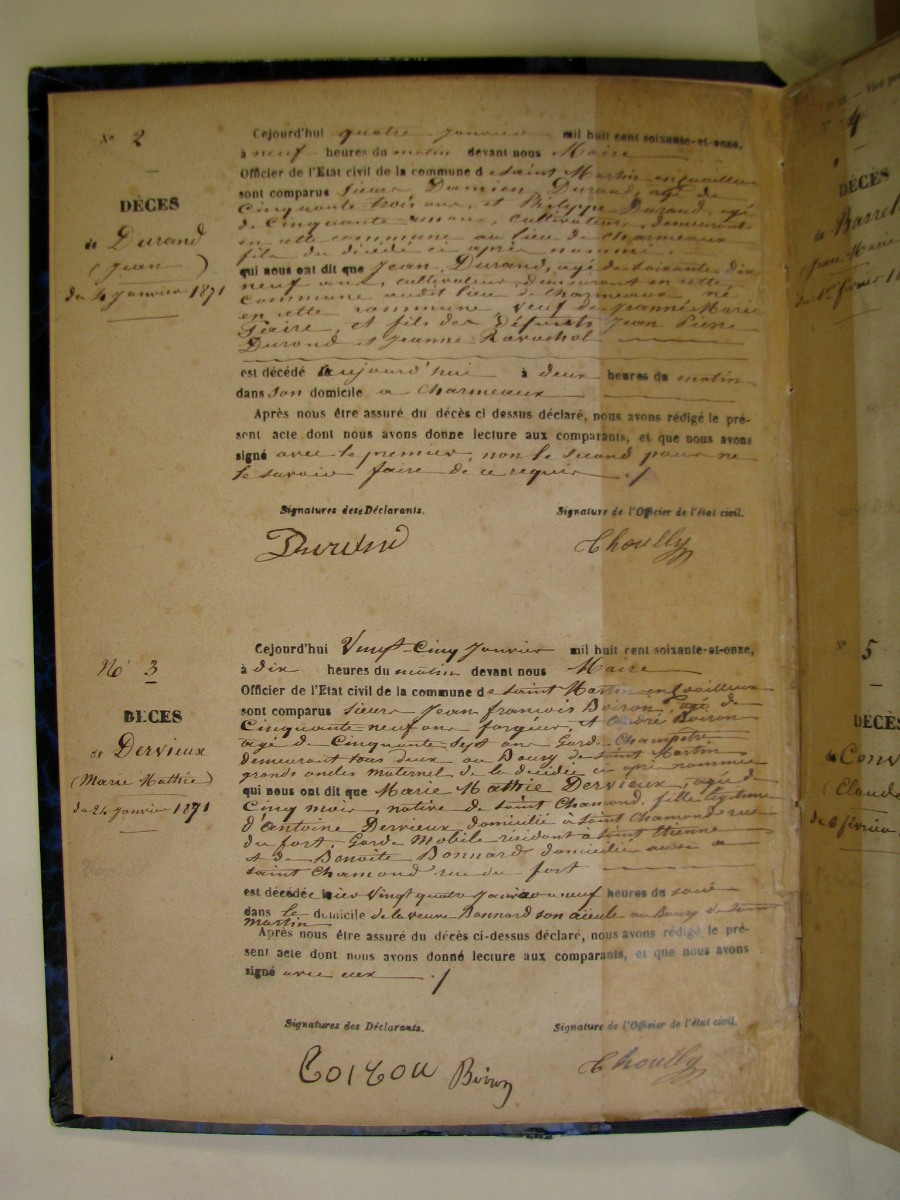 No 2
DÉCES
de Durand
(Jean)
du 4 Janvier 1871
Cejourd'hui quatre Janvier mil huit cent soixante-et-onze,
à neuf heures du matin devant nous Maire
Officier de l'Etat civil de la commune de Saint Martin en Coailleux
sont comparus Sieurs Damien Durand, agé de
Cinquante trois ans, et Philippe Durand, agé
de Cinquante un ans, cultivateurs, demeurant
en cette commune au lieu de Charmeaux
fils du décédé ci après nommé
qui nous ont dit que Jean Durand, agé de soixante dix
neuf ans, cultivateur, demeurant en cette
Commune audit lieu de Charmeaux né
en cette commune, veuf de Jeanne Marie
et fils des Défunts Jean Pierre
Durand et Jeanne Ravachol
est décédé aujourd'hui à deux heures du matin
dans son domicile a Charmeaux
Après nous être assuré du décès ci dessus déclaré, nous avons rédigé le pré-
sent acte dont nous avons donne lecture aux comparants, et que nous avons
signé avec le premier, non le second pour ne
le savoir faire de ce requis ./
Signatures des Déclarants.
Signature de l'Officier de l'état civil.
Durand
Choully
No 3
DÉCES
de Dervieux
(Marie Mathie)
du 24 Janvier 1871
Cejourd'hui Vingt-Cinq Janvier mil huit cent soixante-et-onze,
à dix heures du matin devant nous Maire
Officier de l'Etat civil de la commune de Saint Martin en Coailleux
sont comparus Sieurs Jean francois Boiron, agé de
Cinquante neuf ans forgeur, et André Boiron
agé de Cinquante Sept ans Garde Champetre
demeurant tous deux au Bourg de Saint Martin
grands oncles maternel de la décédée ci après nommée
qui nous ont dit que Marie Mathie Dervieux, agée de
Cinq mois, native de Saint Chamond, fille légitime
d'Antoine Dervieux domicilié à Saint Chamond rue
du fort, Garde Mobile résidant à Saint Etienne
et de Benoite Bonnard domiciliée aussi a
Saint Chamond rue du fort
est décédée hier Vingt quatre Janvier a neuf heures du soir
dans le domicile de la veuve Bonnard son aieule au Bourg de Saint
Martin
Après nous être assuré du décès ci-dessus déclaré, nous avons rédigé le pré-
sent acte dont nous avons donné lecture aux comparants, et que nous avons
signé avec eux ./
Signatures des Déclarants.
Signature de l'Officier de l'état civil.
Boiron
Choully
4
DÉCÈS
de Barrel
(Jean Marie
du 1er février 18
No 5
DÉCÈS
de Conv
(Claude
du 6 février